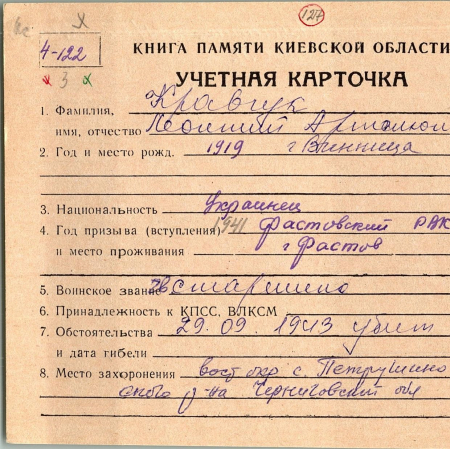 127
4-122
3
КНИГА ПАМЯТИ КИЕВСКОЙ ОБЛАСТИ
УЧЕТНАЯ КАРТОЧКА
1. Фамилия, Кравчук
имя, отчество Леонтий
2. Год и место рожд. 1919 г Винница
3. Национальность Украинец
4. Год призыва (вступления) 1941 Фастовский РВК
и место проживания г Фастов
5. Воинское звание гв старшина
6. Принадлежность к КПСС, ВЛКСМ
7. Обстоятельства 29.09.1943 убит
и дата гибели
8. Место захоронения вост окр с. Петрушино
ского р-на Черниговский обл